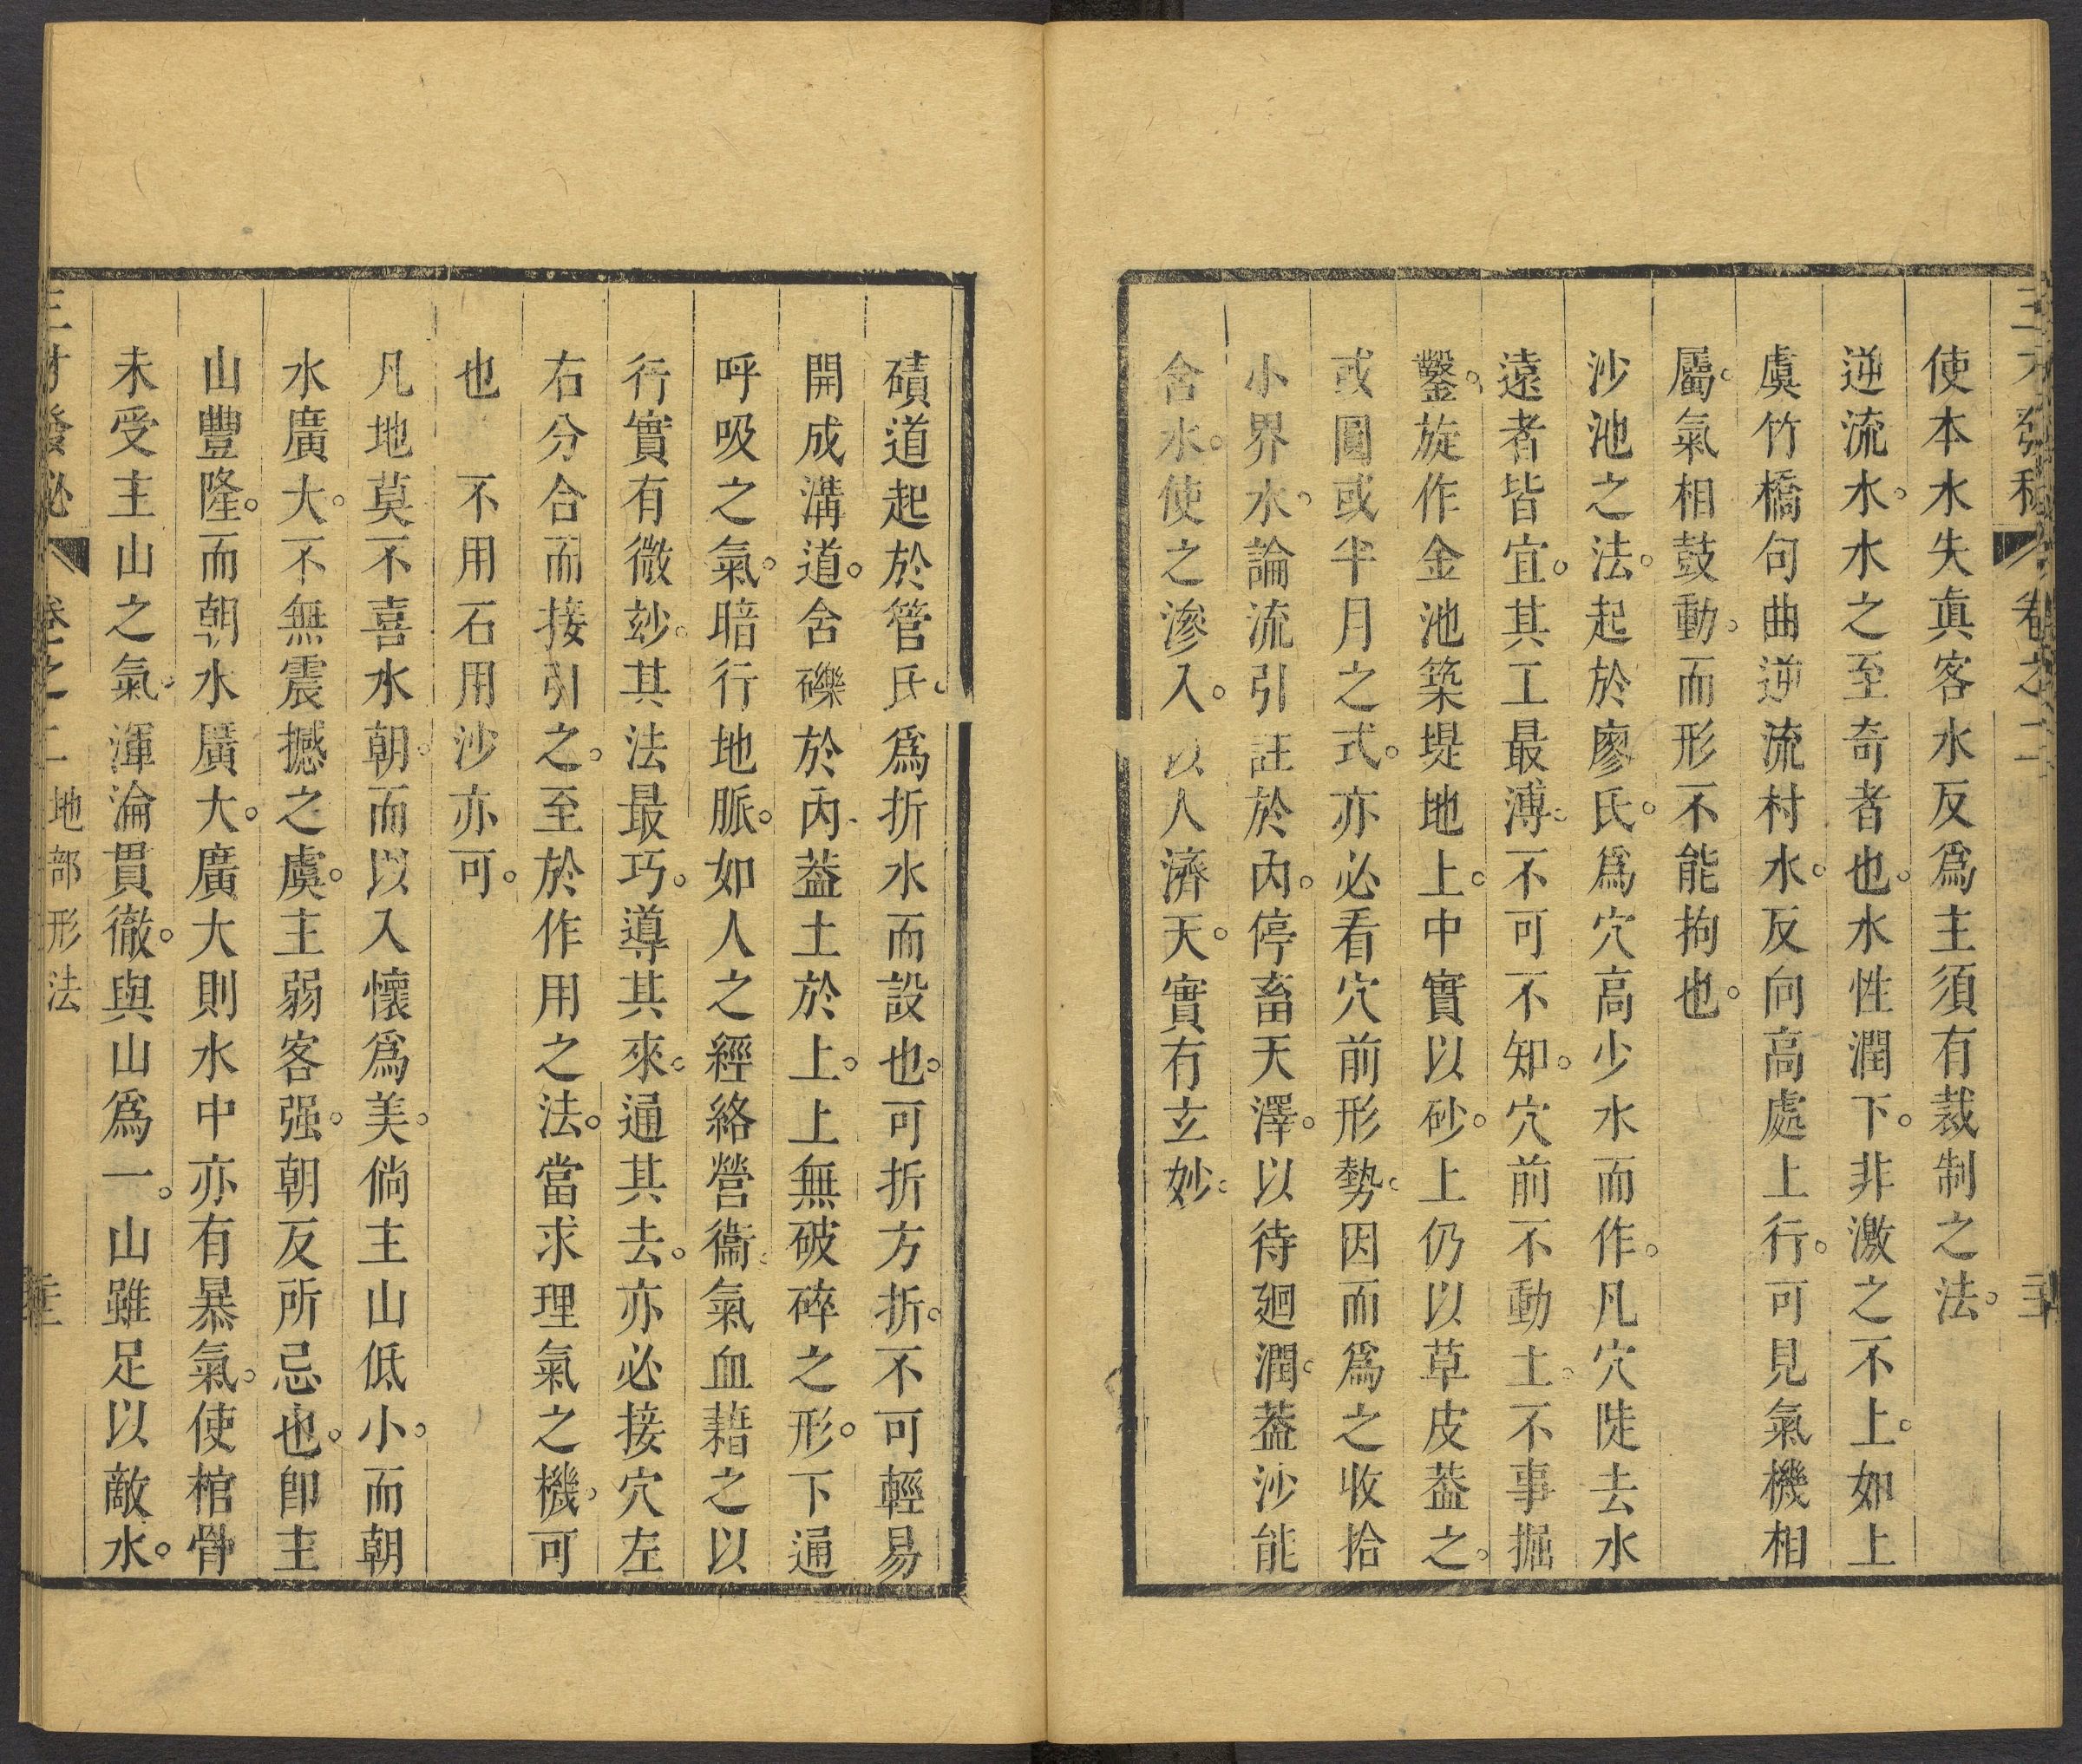 三才發秘 卷之二
使本水失眞客水反爲主須有裁制之法。
逆流水。水之至奇者也。水性潤下。非激之不上。如上
虞竹橋句曲逆流村水。反向高處上行。可見氣機相
屬。氣相鼓動。而形不能拘也。
沙池之法。起於廖氏。爲穴高少水而作。凡穴陡去水
遠者皆宜。其工最溥。不可不知。穴前不動土。不事掘
鑿。旋作金池築堤地上。中實以砂。上仍以草皮葢之。
或圓或半月之式。亦必看穴前形勢。因而爲之收拾
小界水。論流引註於內。停畜天澤。以待廻潤。葢沙能
含水。使之滲入。以人濟天。實有玄妙。
磧道起於管氏。爲折水而設也。可折方折。不可輕易
開成溝道。舍礫於內。葢土於上。上無破碎之形。下通
呼吸之氣。暗行地脈。如人之經絡營衞。氣血藉之以
行。實有微玅。其法最巧。導其來。通其去。亦必接穴左
右分合而接引之。至於作用之法。當求理氣之機。可
也 不用石用沙亦可。
凡地莫不喜水朝。而以入懷爲美。倘主山低小。而朝
水廣大。不無震撼之虞。主弱客强。朝反所忌也。卽主
山豐隆。而朝水廣大。廣大則水中亦有暴氣。使棺骨
未受主山之氣。渾淪貫徹。與山爲一。山雖足以敵水。
三才發秘 卷之二 地部形法